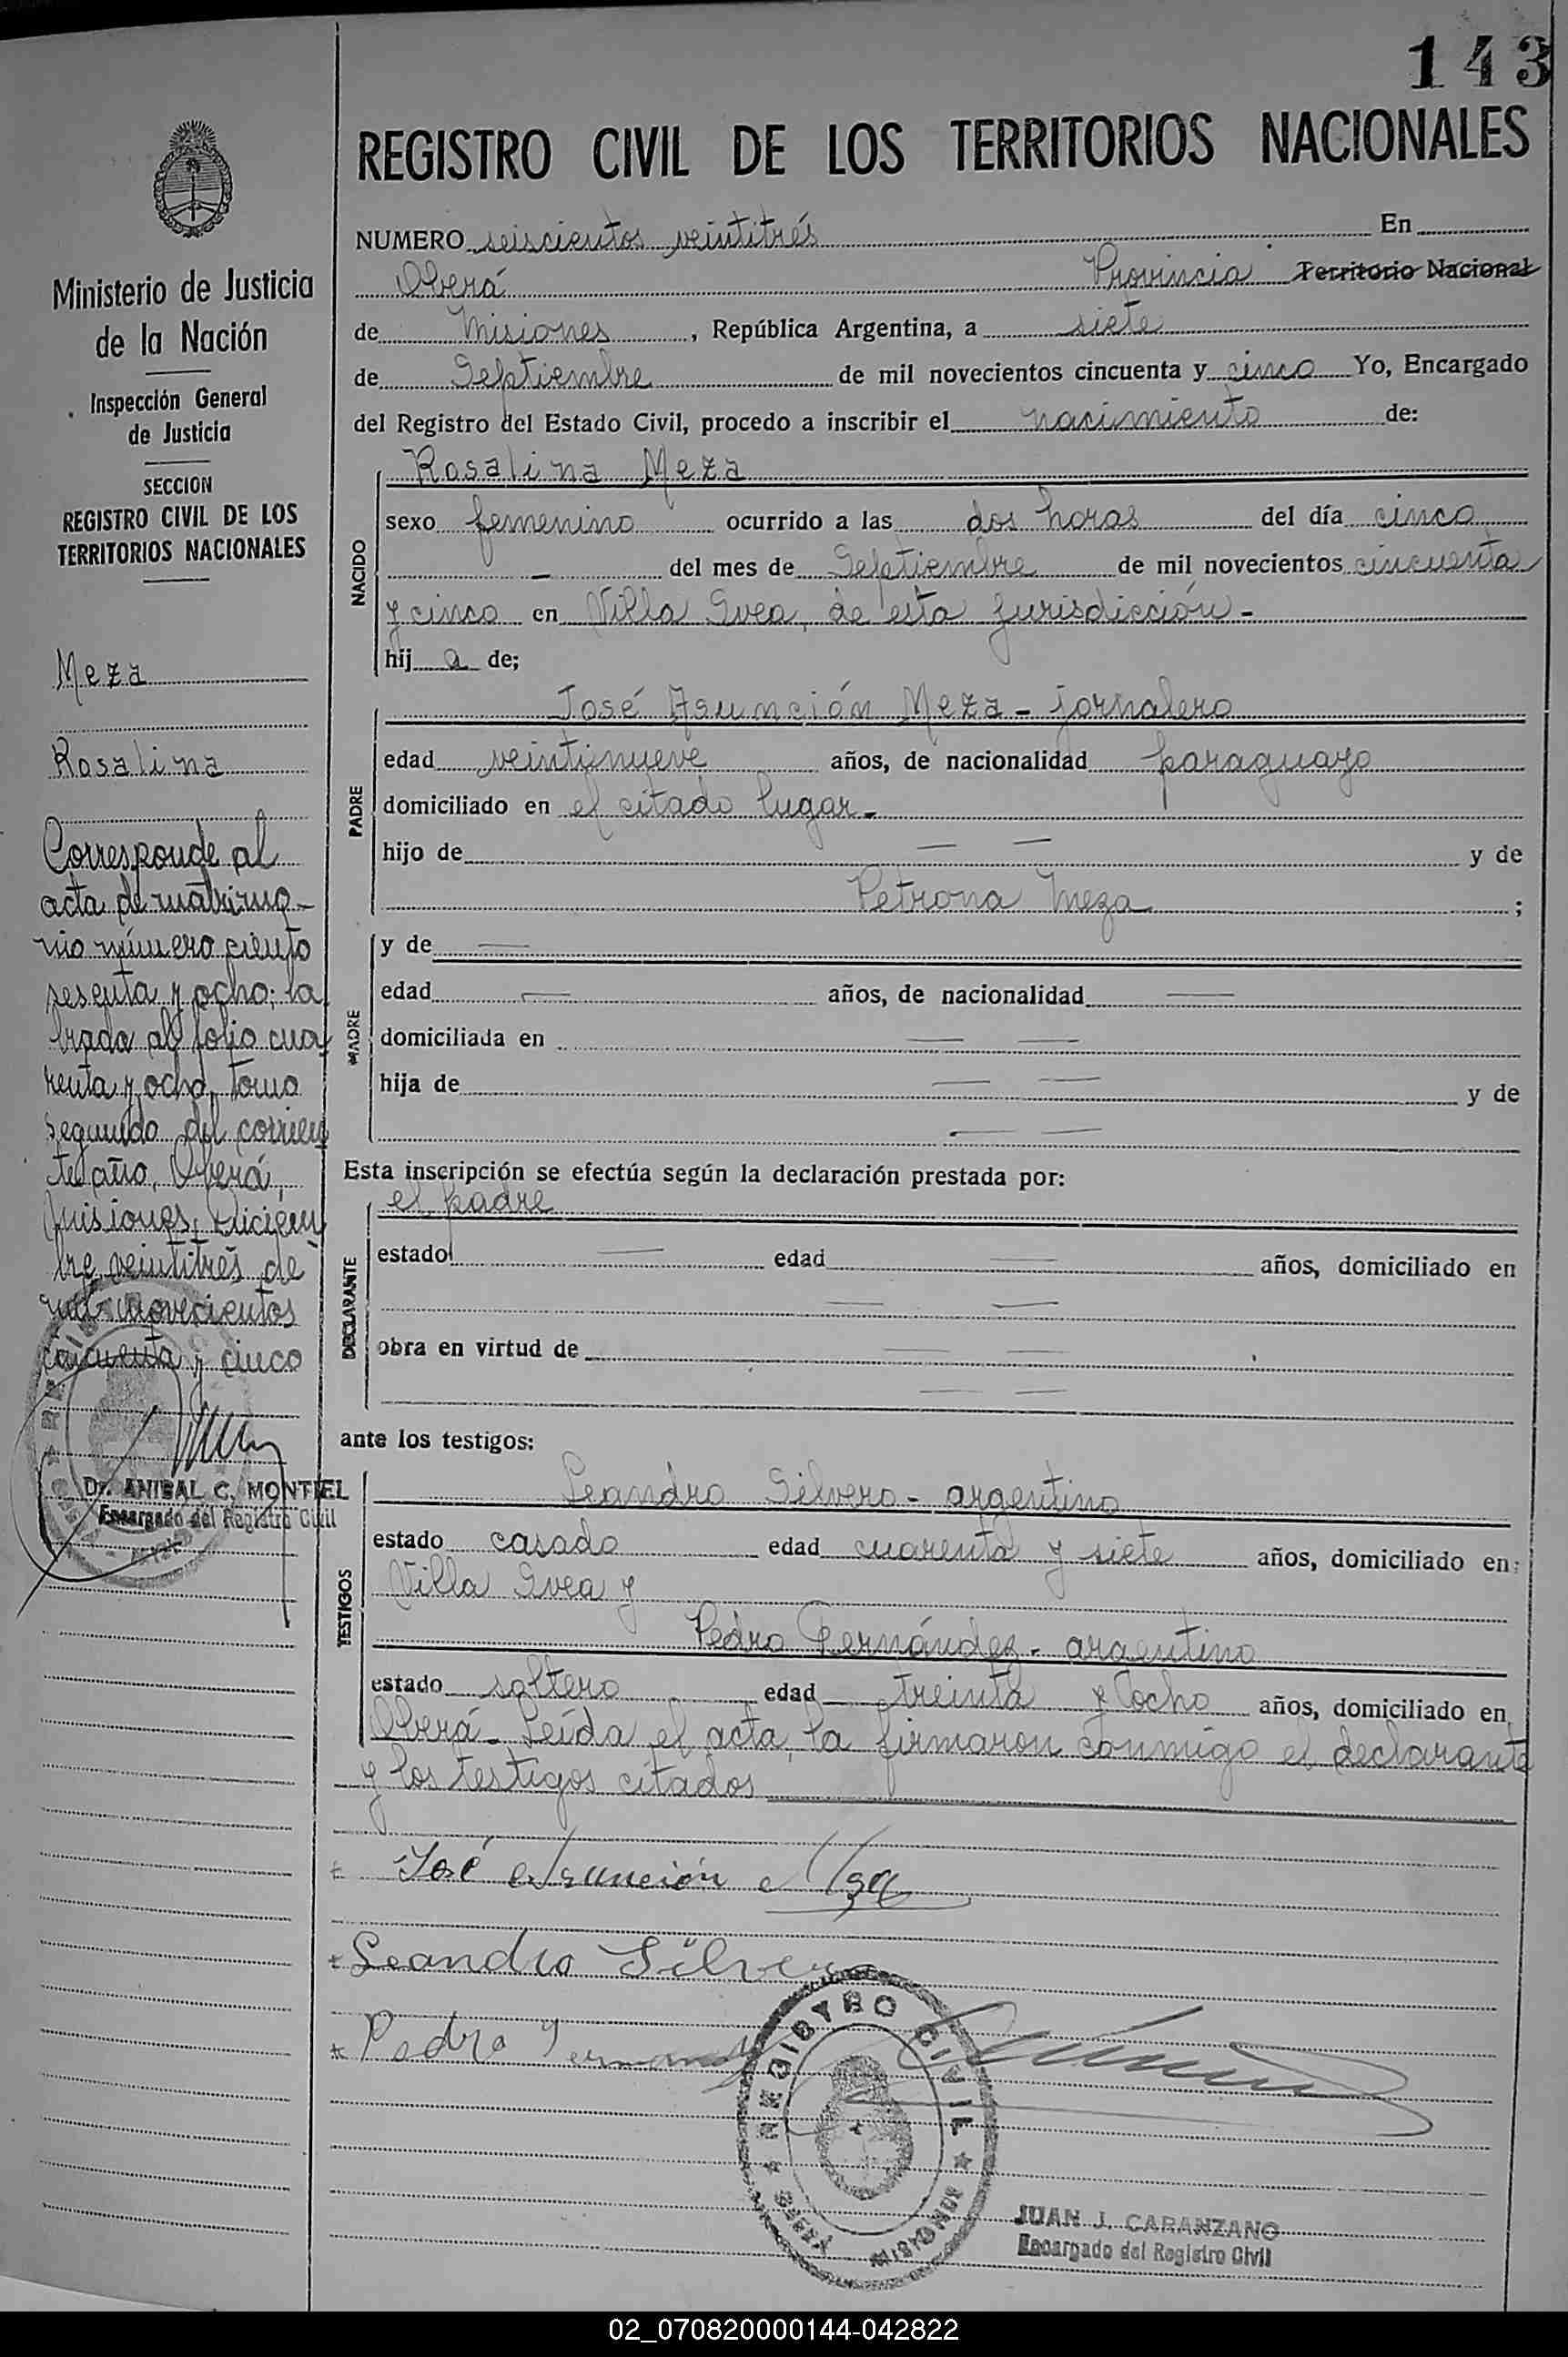 143
REGISTRO CIVIL DE LOS TERRITORIOS NACIONALES
Ministerio de Justicia
de la Nación
Inspección General
de Justicia
SECCION
REGISTRO CIVIL DE LOS
TERRITORIOS NACIONALES
Meza
Rosalina
Corresponde al
acta de matrimo-
nio número ciento
sesenta y ocho; la
brada al folio cua
renta y ocho, tomo
segundo del corrien
te año, Oberá,
Misiones, Diciem
bre veintitrés de
mil novecientos
cincuenta y cinco
Dr. ANIBAL C. MONTIEL
Encargado del Registro Civil
NUMERO seiscientos veintitrés En
Oberá Provincia Territorio Nacional
de Misiones, República Argentina, a siete
de Septiembre de mil novecientos cincuenta y cinco Yo, Encargado
del Registro del Estado Civil, procedo a inscribir el nacimiento de:
NACIDO
Rosalina Meza
sexo femenino ocurrido a las dos horas del día cinco
- del mes de Septiembre de mil novecientos cincuenta
y cinco en Villa Svea, de esta jurisdicción -
hij a de;
PADRE
José Asunción Meza - jornalero
edad veintinueve años, de nacionalidad paraguayo
domiciliado en el citado lugar -
hijo de — — y de
Petrona Meza ;
MADRE
y de —
edad — años, de nacionalidad —
domiciliada en — —
hija de — — y de
— —
Esta inscripción se efectúa según la declaración prestada por:
DECLARANTE
el padre
estado — edad — años, domiciliado en
— —
obra en virtud de — —
— —
ante los testigos:
TESTIGOS
Leandro Silvero - argentino
estado casado edad cuarenta y siete años, domiciliado en:
Villa Svea y
Pedro Fernández - argentino
estado soltero edad treinta y ocho años, domiciliado en
Oberá - Leída el acta, la firmaron conmigo el declarante
y los testigos citados
José Asunción Meza
Leandro Silvero
Pedro Fernandez
REGISTRO CIVIL
OBERA MISIONES
JUAN J. CARANZANO
Encargado del Registro Civil
02_070820000144-042822